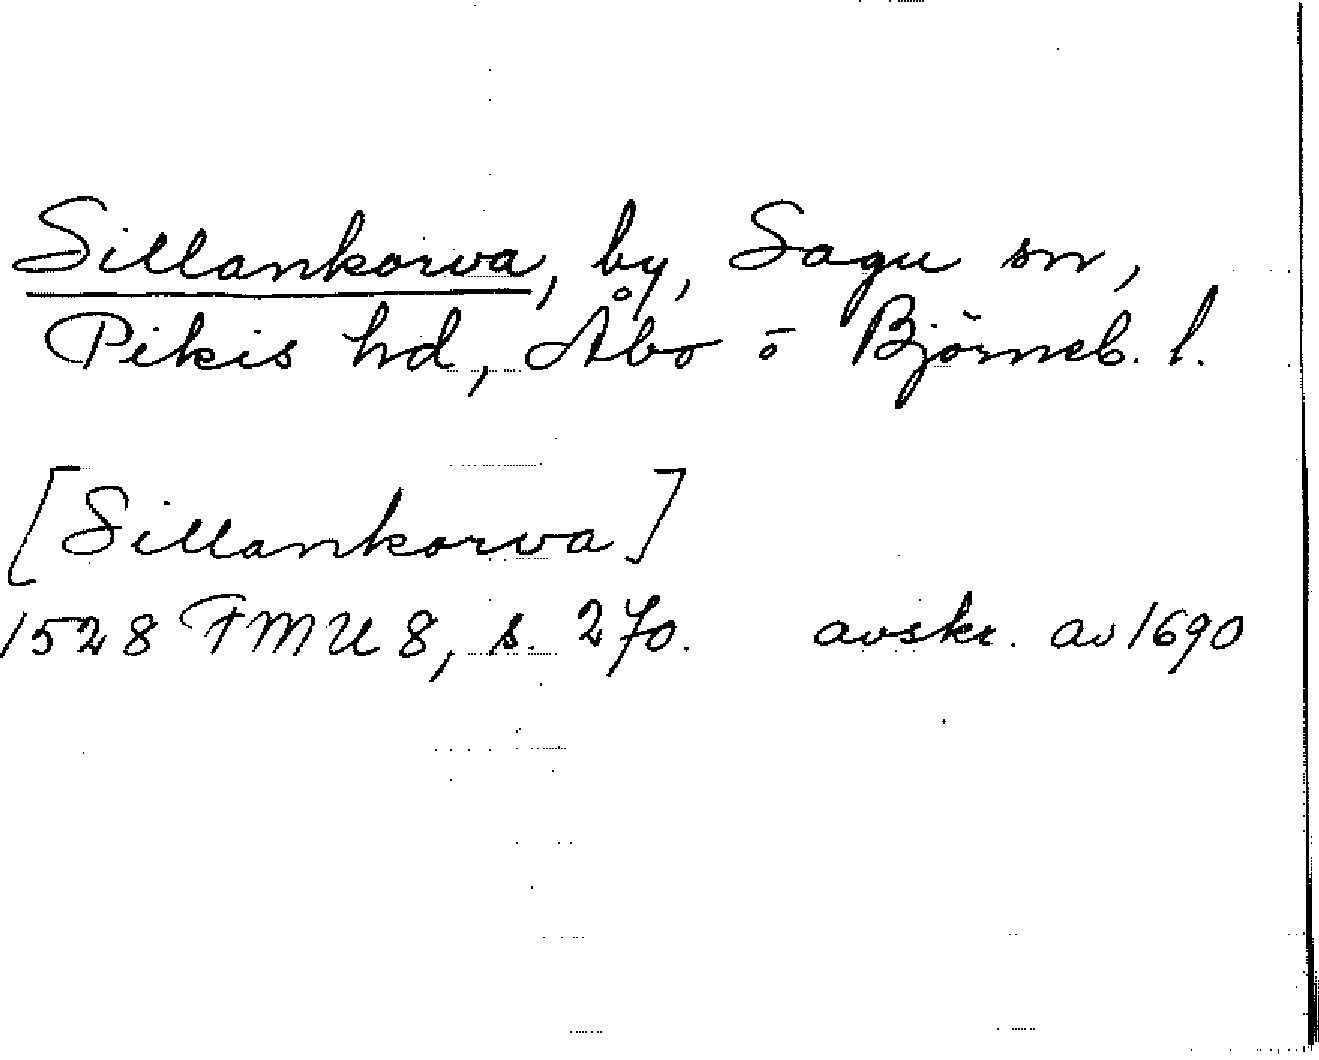 Sillankorva, by, Sagu sn,
Pikis hd, Åbo o Björneb. l.
[Sillankorva]
1528 FMU 8, s. 270. avskr. av 1690